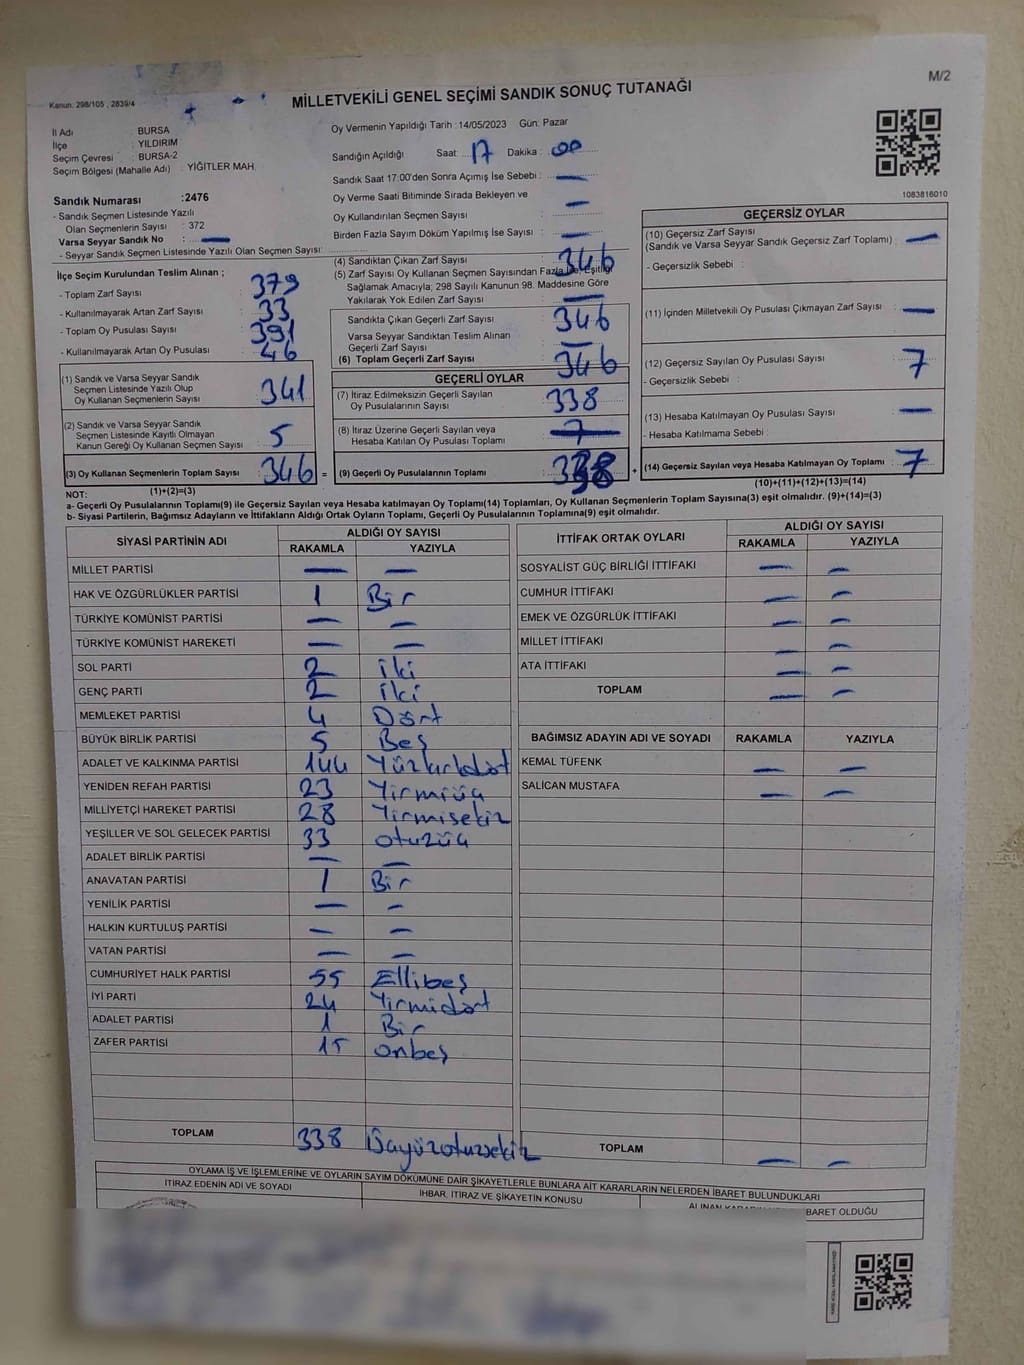 Kanun. 298/105 , 2839/4
M/2
MİLLETVEKİLİ GENEL SEÇİMİ SANDIK SONUÇ TUTANAĞI
İl Adı : BURSA
İlçe : YILDIRIM
Seçim Çevresi : BURSA-2
Seçim Bölgesi (Mahalle Adı) : YİĞİTLER MAH.
Sandık Numarası :2476
- Sandık Seçmen Listesinde Yazılı
Olan Seçmenlerin Sayısı : 372
Varsa Seyyar Sandık No : —
- Seyyar Sandık Seçmen Listesinde Yazılı Olan Seçmen Sayısı:
Oy Vermenin Yapıldığı Tarih :14/05/2023 Gün: Pazar
Sandığın Açıldığı Saat: 17 Dakika : 00
Sandık Saat 17:00'den Sonra Açımış İse Sebebi : —
Oy Verme Saati Bitiminde Sırada Bekleyen ve
Oy Kullandırılan Seçmen Sayısı : —
Birden Fazla Sayım Döküm Yapılmış İse Sayısı : —
1083816010
İlçe Seçim Kurulundan Teslim Alınan ;
- Toplam Zarf Sayısı : 379
- Kullanılmayarak Artan Zarf Sayısı : 33
- Toplam Oy Pusulası Sayısı : 391
- Kullanılmayarak Artan Oy Pusulası : 46
(1) Sandık ve Varsa Seyyar Sandık
Seçmen Listesinde Yazılı Olup
Oy Kullanan Seçmenlerin Sayısı : 341
(2) Sandık ve Varsa Seyyar Sandık
Seçmen Listesinde Kayıtlı Olmayan
Kanun Gereği Oy Kullanan Seçmen Sayısı : 5
(3) Oy Kullanan Seçmenlerin Toplam Sayısı : 346 =
(1)+(2)=(3)
(4) Sandıktan Çıkan Zarf Sayısı : 346
(5) Zarf Sayısı Oy Kullanan Seçmen Sayısından Fazla İse, Eşitliği
Sağlamak Amacıyla, 298 Sayılı Kanunun 98. Maddesine Göre
Yakılarak Yok Edilen Zarf Sayısı : —
Sandıkta Çıkan Geçerli Zarf Sayısı : 346
Varsa Seyyar Sandıktan Teslim Alınan
Geçerli Zarf Sayısı : —
(6) Toplam Geçerli Zarf Sayısı : 346
GEÇERLİ OYLAR
(7) İtiraz Edilmeksizin Geçerli Sayılan
Oy Pusulalarının Sayısı : 338
(8) İtiraz Üzerine Geçerli Sayılan veya
Hesaba Katılan Oy Pusulası Toplamı : 7
(9) Geçerli Oy Pusulalarının Toplamı : 338 +
GEÇERSİZ OYLAR
(10) Geçersiz Zarf Sayısı : —
(Sandık ve Varsa Seyyar Sandık Geçersiz Zarf Toplamı)
- Geçersizlik Sebebi :
(11) İçinden Milletvekili Oy Pusulası Çıkmayan Zarf Sayısı : —
(12) Geçersiz Sayılan Oy Pusulası Sayısı : 7
- Geçersizlik Sebebi :
(13) Hesaba Katılmayan Oy Pusulası Sayısı : —
- Hesaba Katılmama Sebebi :
(14) Geçersiz Sayılan veya Hesaba Katılmayan Oy Toplamı : 7
(10)+(11)+(12)+(13)=(14)
NOT:
a- Geçerli Oy Pusulalarının Toplamı(9) ile Geçersiz Sayılan veya Hesaba katılmayan Oy Toplamı(14) Toplamları, Oy Kullanan Seçmenlerin Toplam Sayısına(3) eşit olmalıdır. (9)+(14)=(3)
b- Siyasi Partilerin, Bağımsız Adayların ve İttifakların Aldığı Ortak Oyların Toplamı, Geçerli Oy Pusulalarının Toplamına(9) eşit olmalıdır.
SİYASİ PARTİNİN ADI ALDIĞI OY SAYISI
RAKAMLA YAZIYLA
MİLLET PARTİSİ — —
HAK VE ÖZGÜRLÜKLER PARTİSİ 1 Bir
TÜRKİYE KOMÜNİST PARTİSİ — —
TÜRKİYE KOMÜNİST HAREKETİ — —
SOL PARTİ 2 iki
GENÇ PARTİ 2 iki
MEMLEKET PARTİSİ 4 Dört
BÜYÜK BİRLİK PARTİSİ 5 Beş
ADALET VE KALKINMA PARTİSİ 144 Yüzkırkdört
YENİDEN REFAH PARTİSİ 23 Yirmiüç
MİLLİYETÇİ HAREKET PARTİSİ 28 Yirmisekiz
YEŞİLLER VE SOL GELECEK PARTİSİ 33 otuzüç
ADALET BİRLİK PARTİSİ — —
ANAVATAN PARTİSİ 1 Bir
YENİLİK PARTİSİ — —
HALKIN KURTULUŞ PARTİSİ — —
VATAN PARTİSİ — —
CUMHURİYET HALK PARTİSİ 55 Ellibeş
İYİ PARTİ 24 Yirmidört
ADALET PARTİSİ 1 Bir
ZAFER PARTİSİ 15 onbeş
TOPLAM 338 Üçyüzotuzsekiz
İTTİFAK ORTAK OYLARI ALDIĞI OY SAYISI
RAKAMLA YAZIYLA
SOSYALİST GÜÇ BİRLİĞİ İTTİFAKI — —
CUMHUR İTTİFAKI — —
EMEK VE ÖZGÜRLÜK İTTİFAKI — —
MİLLET İTTİFAKI — —
ATA İTTİFAKI — —
TOPLAM — —
BAĞIMSIZ ADAYIN ADI VE SOYADI RAKAMLA YAZIYLA
KEMAL TÜFENK — —
SALİCAN MUSTAFA — —
TOPLAM — —
OYLAMA İŞ VE İŞLEMLERİNE VE OYLARIN SAYIM DÖKÜMÜNE DAİR ŞİKAYETLERLE BUNLARA AİT KARARLARIN NELERDEN İBARET BULUNDUKLARI
İTİRAZ EDENİN ADI VE SOYADI
İHBAR, İTİRAZ VE ŞİKAYETİN KONUSU
BARET OLDUĞU